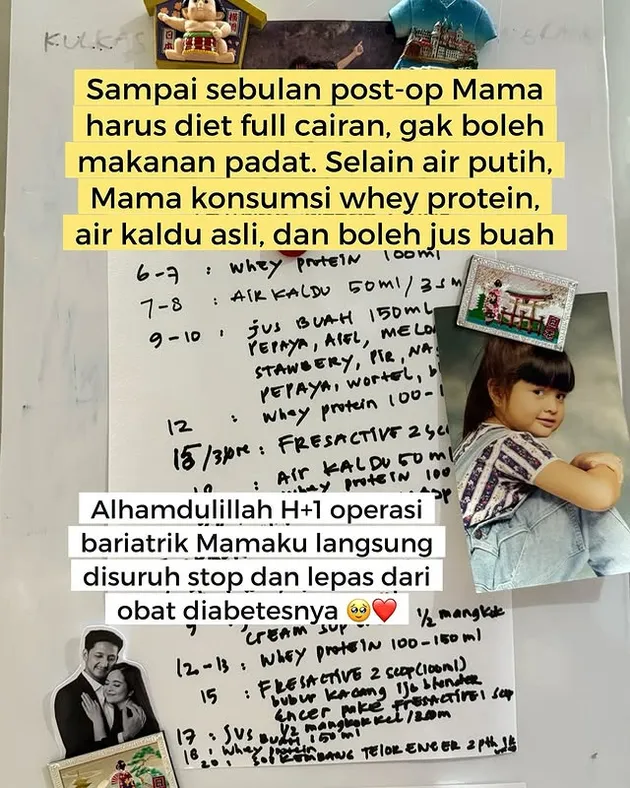 KULKAS
Sampai sebulan post-op Mama
harus diet full cairan, gak boleh
makanan padat. Selain air putih,
Mama konsumsi whey protein,
air kaldu asli, dan boleh jus buah
6-7 : whey protein 100ml
7-8 : AIR KALDU 50ml/
9-10 : jus BUAH 150ml
PEPAYA, APEL,
STAWBERY, PIR,
PEPAYA, wortel,
12 : whey protein 100-
15/ : FRESACTIVE 2
: AIR KALDU 50 ml
whey protein 100
Alhamdulillah H+1 operasi
bariatrik Mamaku langsung
disuruh stop dan lepas dari
obat diabetesnya 🥹❤️
CREAM SUP 1/2 mangkok
12-13 : whey protein 100-150 ml
15 : FRESACTIVE 2 scop(100ml)
bubur kacang ijo blender
Encer pake FRESACTIVE 1 scp
1/2 mangkok kcl
17 : JUS BUAH 150ml
18 : whey protein
20 : KEMBANG TELOR ENCER 2